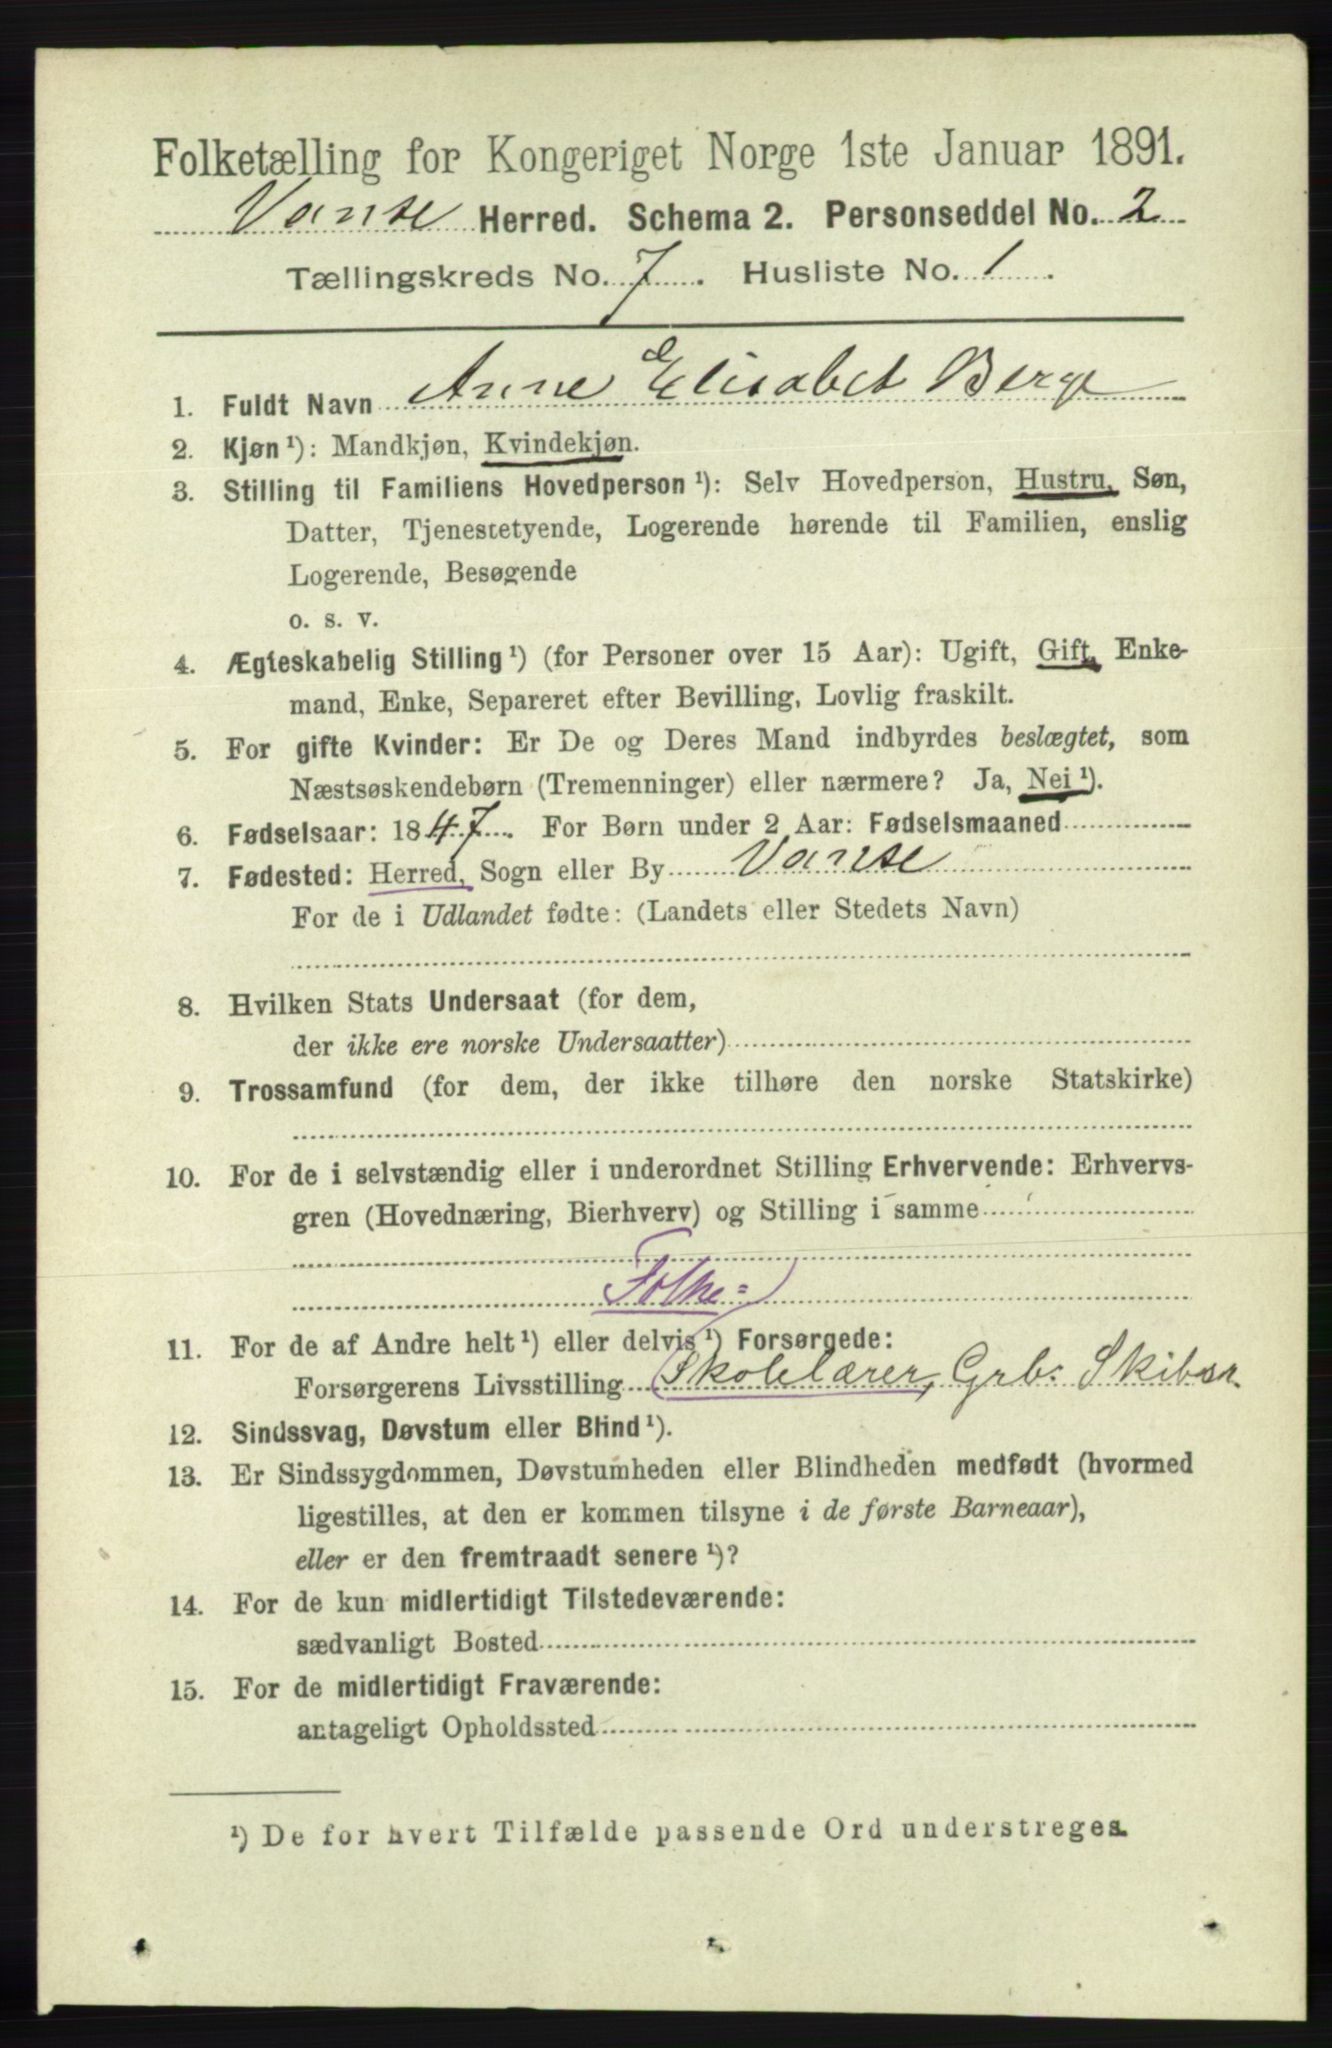 Folketælling for Kongeriget Norge 1ste Januar 1891.
Vanse Herred. Schema 2. Personseddel No. 2
Tællingskreds No. 7. Husliste No. 1.
1. Fuldt Navn Anne Elisabet Berge
2. Kjøn ¹): Mandkjøn, Kvindekjøn.
3. Stilling til Familiens Hovedperson ¹): Selv Hovedperson, Hustru, Søn,
Datter, Tjenestetyende, Logerende hørende til Familien, enslig
Logerende, Besøgende
o. s. v.
4. Ægteskabelig Stilling ¹) (for Personer over 15 Aar): Ugift, Gift, Enke-
mand, Enke, Separeret efter Bevilling, Lovlig fraskilt.
5. For gifte Kvinder: Er De og Deres Mand indbyrdes beslægtet, som
Næstsøskendebørn (Tremenninger) eller nærmere? Ja, Nei ¹).
6. Fødselsaar: 1847. For Børn under 2 Aar: Fødselsmaaned
7. Fødested: Herred, Sogn eller By Vanse
For de i Udlandet fødte: (Landets eller Stedets Navn)
8. Hvilken Stats Undersaat (for dem,
der ikke ere norske Undersaatter)
9. Trossamfund (for dem, der ikke tilhøre den norske Statskirke)
10. For de i selvstændig eller i underordnet Stilling Erhvervende: Erhvervs-
gren (Hovednæring, Bierhverv) og Stilling i samme
Folke=
11. For de af Andre helt ¹) eller delvis ¹) Forsørgede:
Forsørgerens Livsstilling Skolelærer, Grb. Skibsr.
12. Sindssvag, Døvstum eller Blind ¹).
13. Er Sindssygdommen, Døvstumheden eller Blindheden medfødt (hvormed
ligestilles, at den er kommen tilsyne i de første Barneaar),
eller er den fremtraadt senere ¹)?
14. For de kun midlertidigt Tilstedeværende:
sædvanligt Bosted
15. For de midlertidigt Fraværende:
antageligt Opholdssted
¹) De for hvert Tilfælde passende Ord understreges.